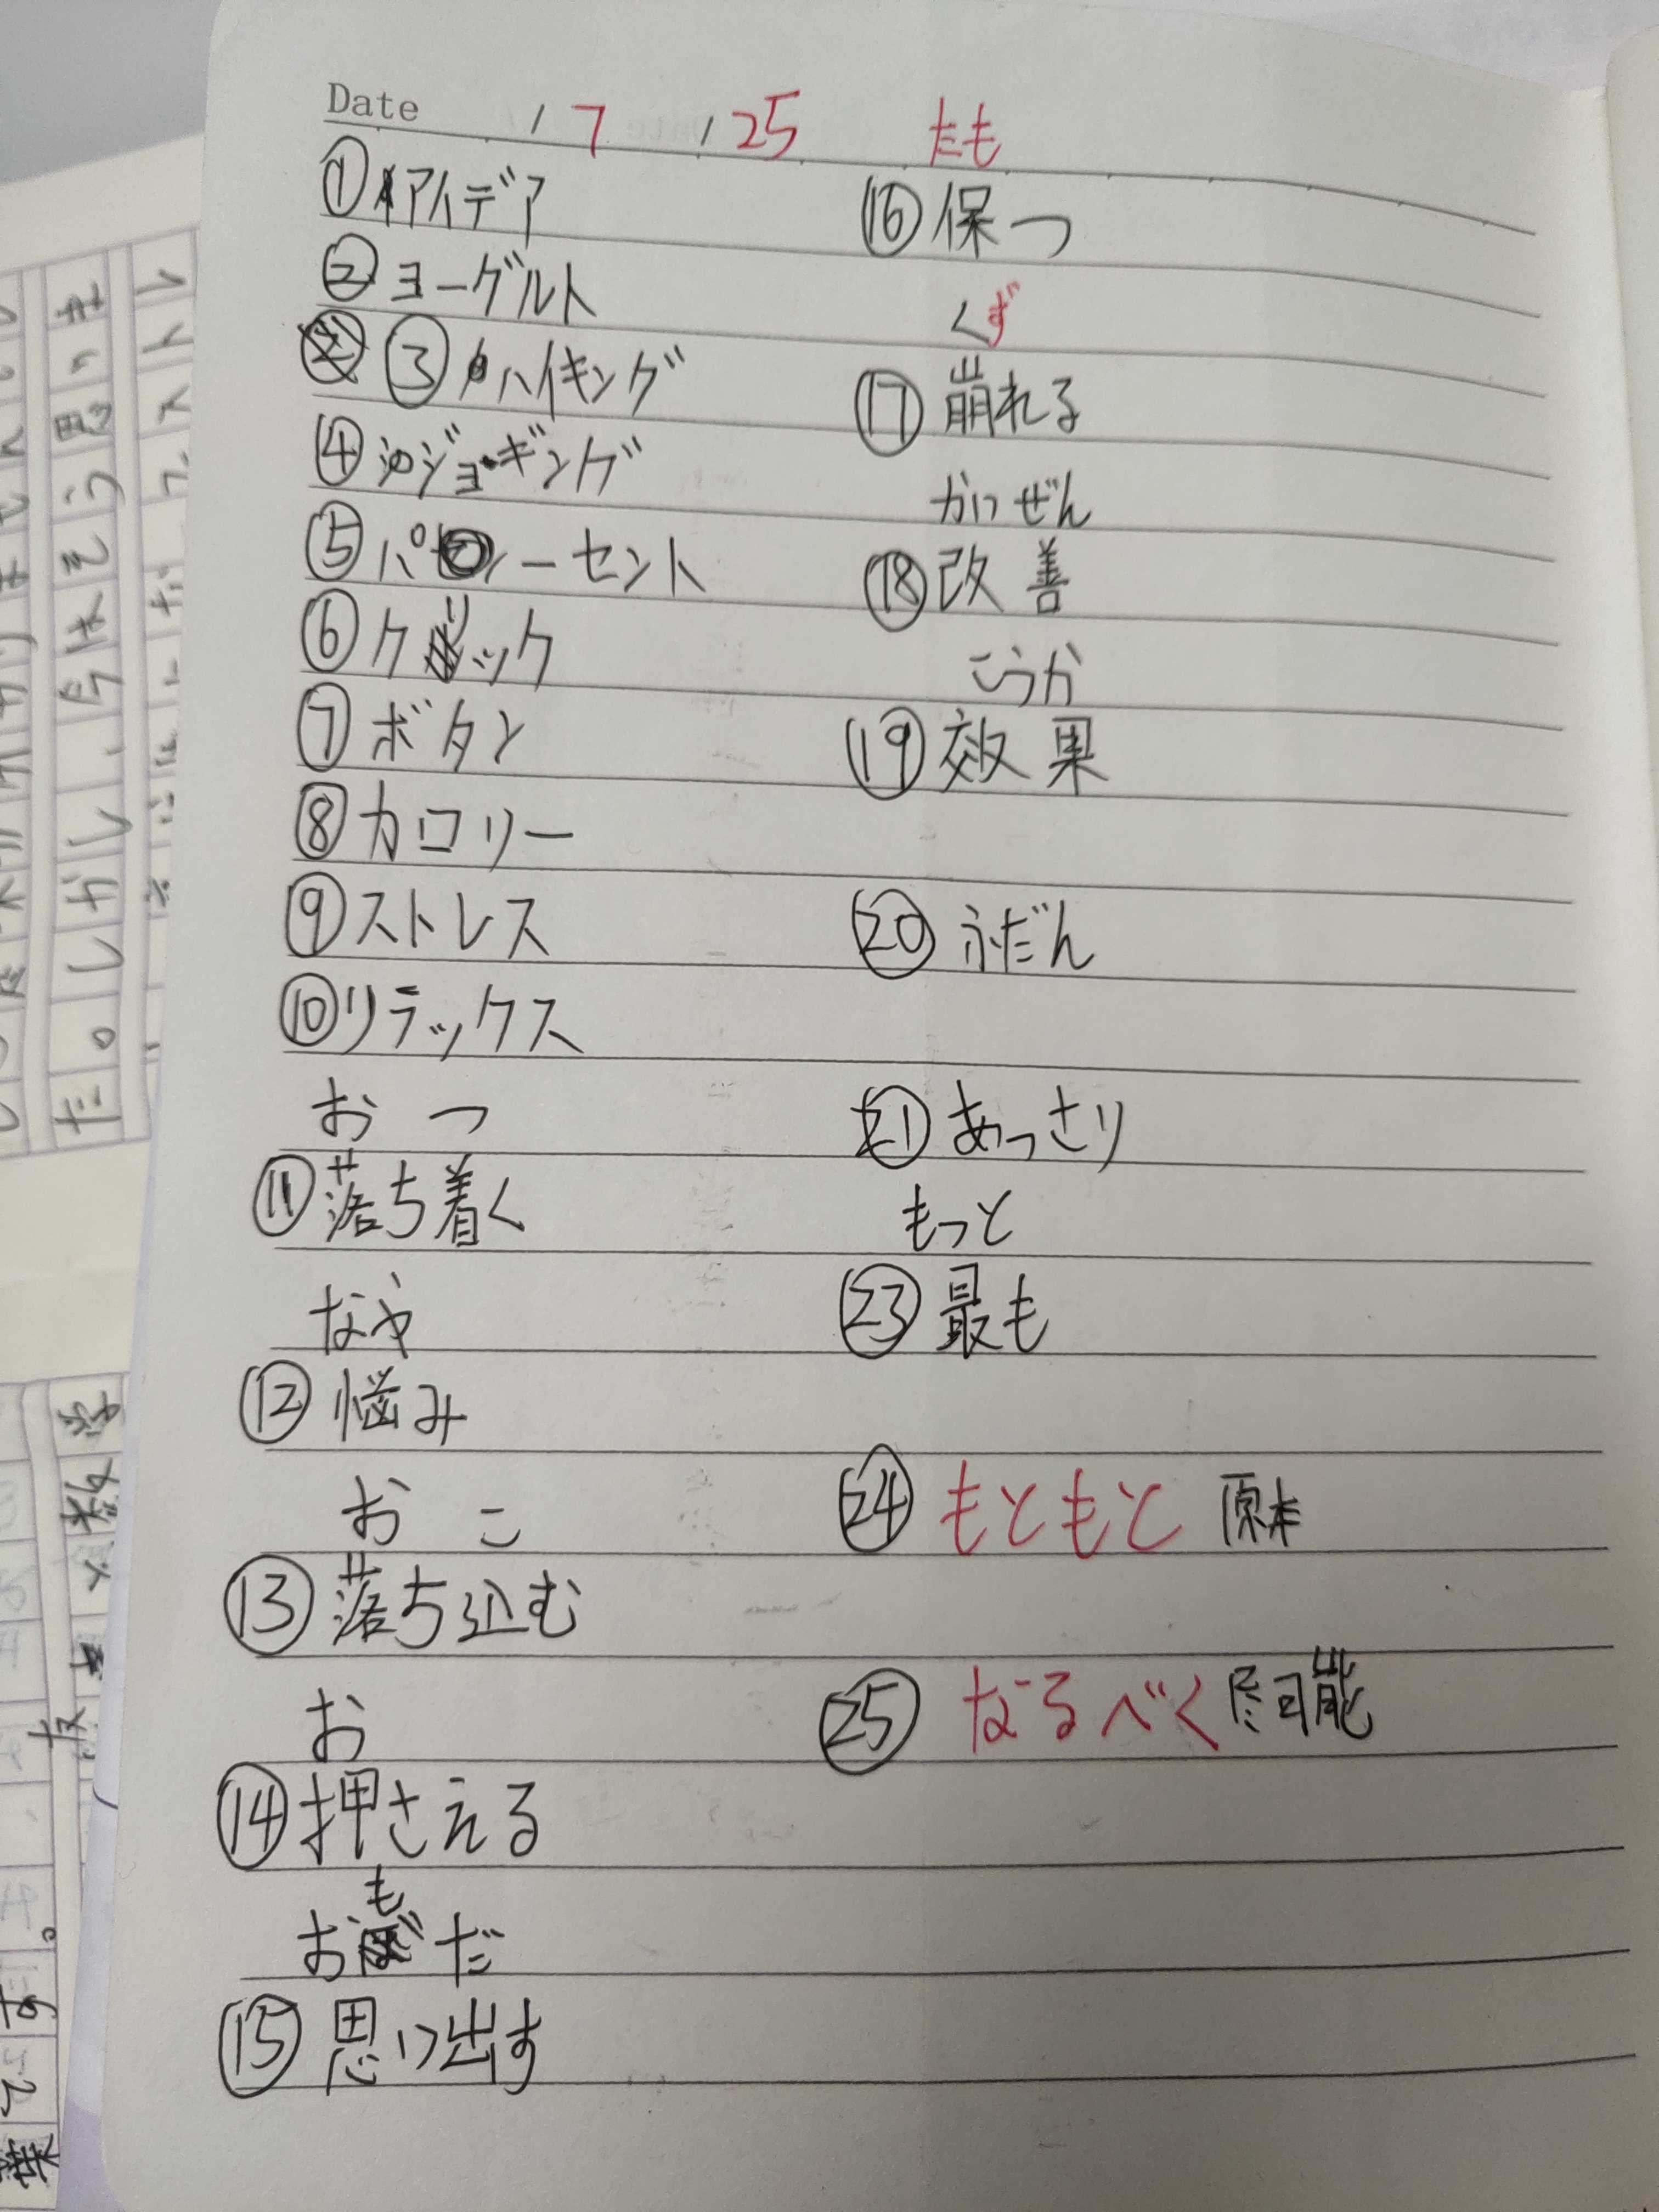 Date / 7 / 25
① アイデア
② ヨーグルト
③ ハイキング
④ ジョギング
⑤ パーセント
⑥ クリック
⑦ ボタン
⑧ カロリー
⑨ ストレス
⑩ リラックス
お つ
⑪ 落ち着く
なや
⑫ 悩み
お こ
⑬ 落ち込む
お
⑭ 押さえる
おもだ
⑮ 思い出す
たも
⑯ 保つ
くず
⑰ 崩れる
かいぜん
⑱ 改善
こうか
⑲ 効果
⑳ ふだん
㉑ あっさり
もっと
㉓ 最も
㉔ もともと 原本
㉕ なるべく 尽可能